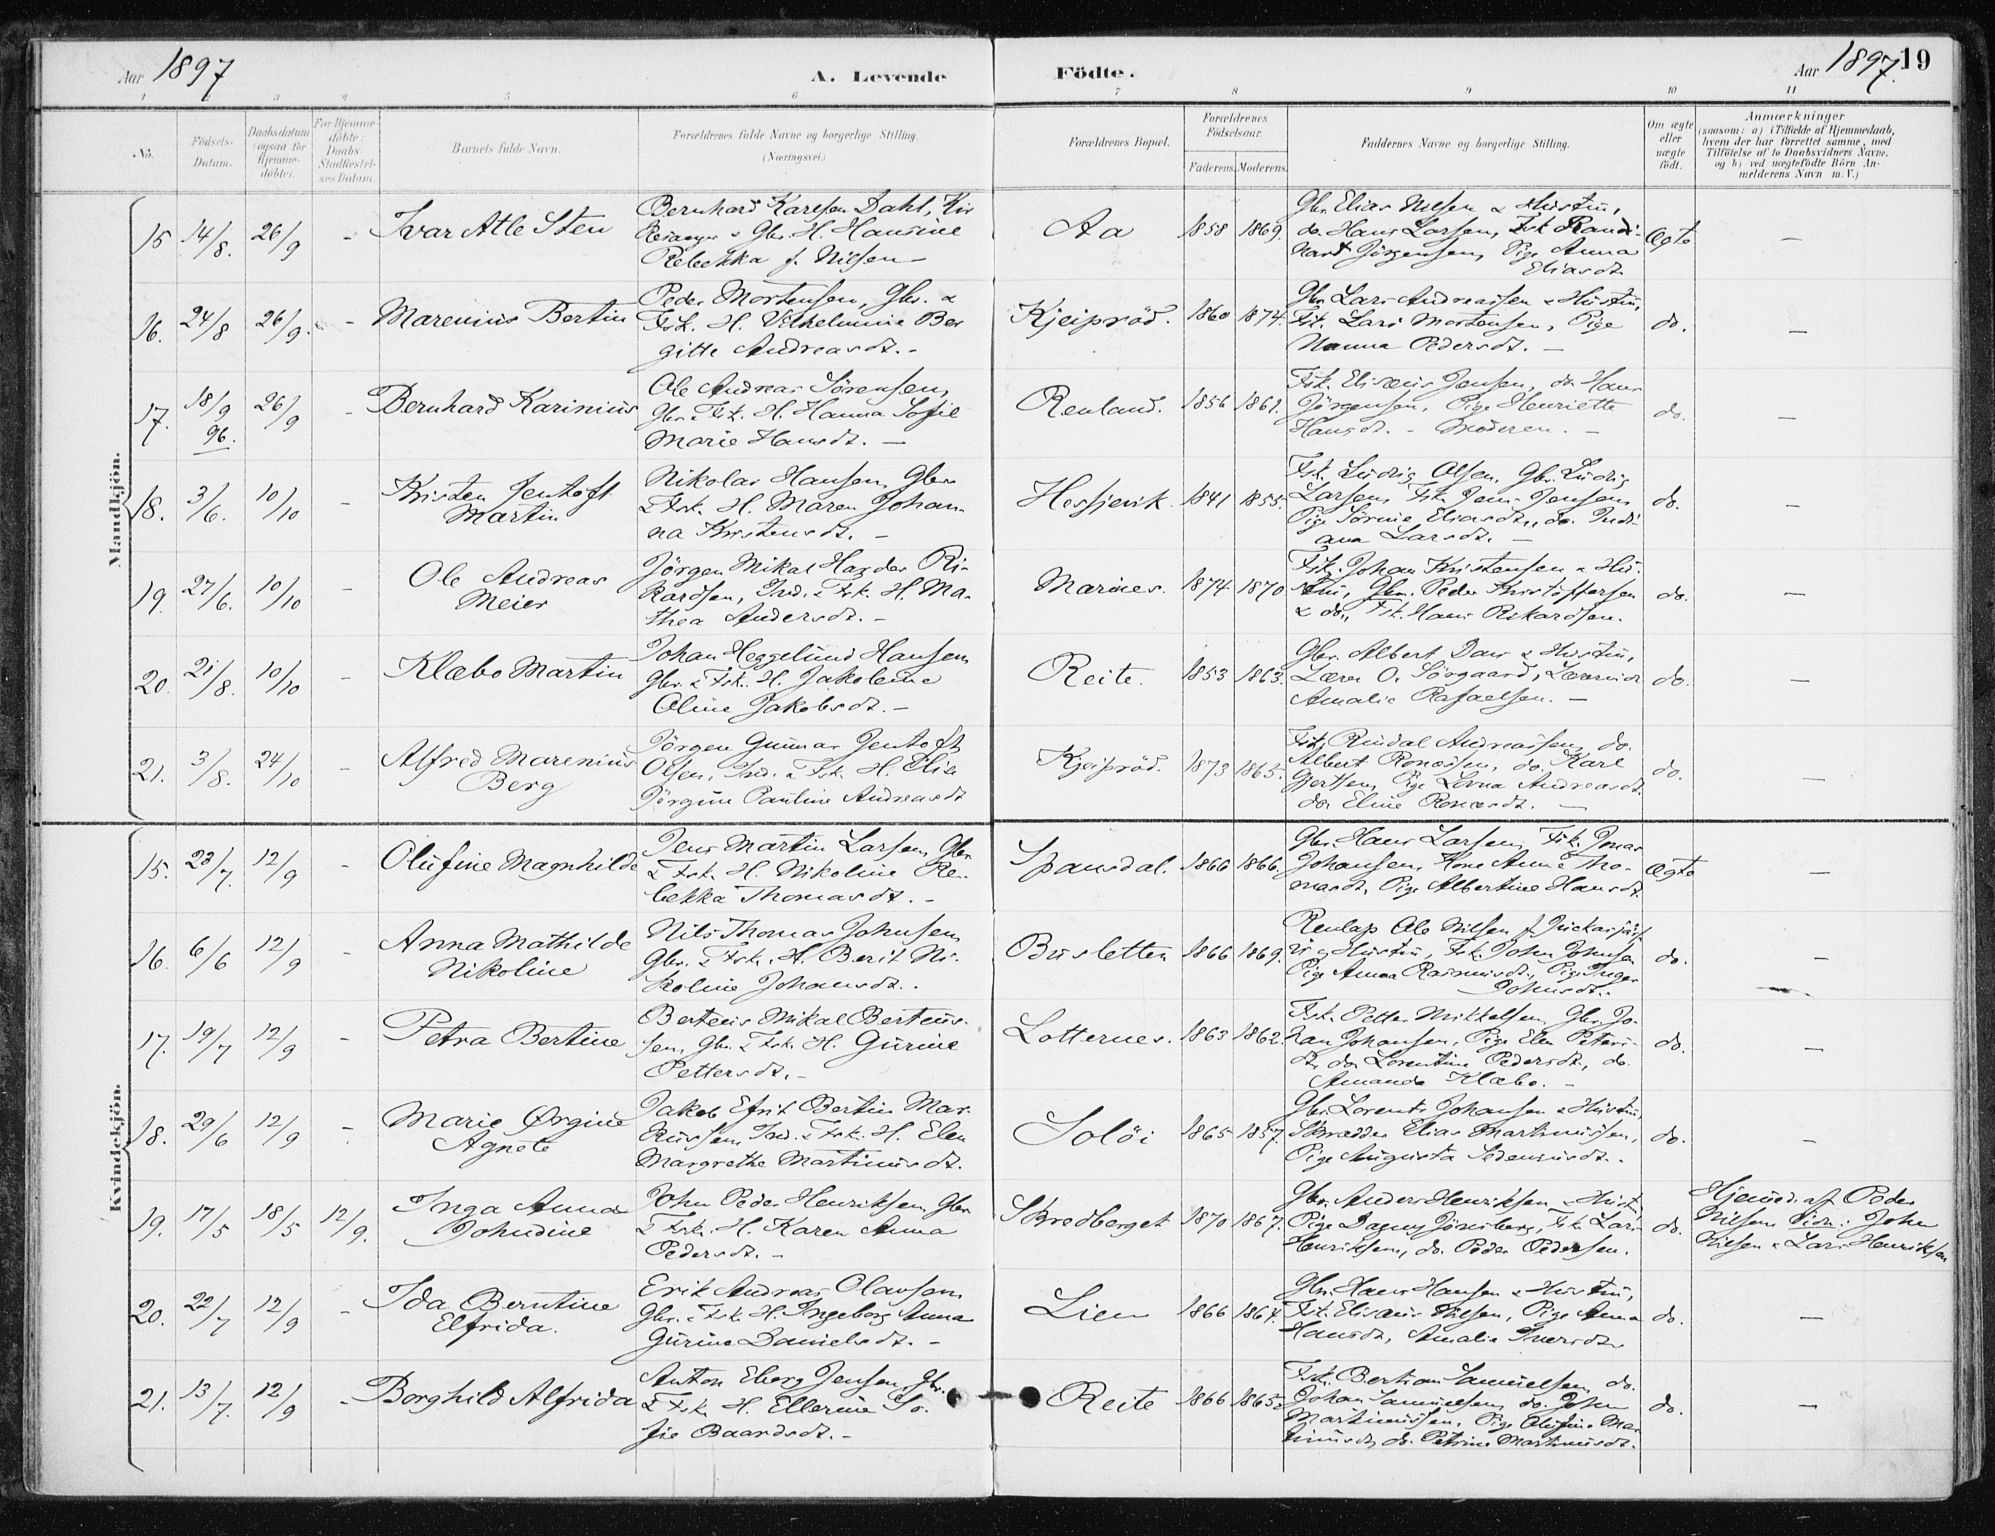 Aar 1897 A. Levende Födte. Aar 1897. 19
1 2 3 4 5 6 7 8 9 10 11
No. Födsels-Datum. Daabsdatum (ogsaa for Hjemme-döbte). For Hjemme-döbte: Daabs-Stadfæstelses Datum. Barnets fulde Navn. Forældrenes fulde Navne og borgerlige Stilling. (Næringsvei.) Forældrenes Bopæl. Forældrenes Födselsaar. Faderens. Moderens. Faddernes Navne og borgerlige Stilling. Om ægte eller uægte födt. Anmærkninger
(saasom: a) i Tilfælde af Hjemmedaab, hvem der har forrettet samme, med Tilföielse af to Daabsvidners Navne, og b) ved uægtefödte Börn Anmelderens Navn m. V.)
Mandkjön.
15 14/8. 26/9 - Ivar Atle Sten
Bernhard Karlsen Dahl, Kir
Gbr. H. Hansine
Rebekka f. Nilsen
Aa 1858 1869.
Gbr. Elias Nilsen & Hustru,
do. Hans Larsen, Fsk Randi-
nart Jörgensen, Pige Anna
Eliasdt.
Ægte —
16. 24/8 26/9. - Marenius Bertin
Peder Mortensen, Gbr. &
Fsk. H. Vilhelmine Ber
gitte Andreasdt. -
Kjeiprød. 1860 1874.
Gbr. Lars Andreassen & Hustru,
Fsk. Lars Mortensen, Pige
Hanna Pedersdt. —
do. —
17. 18/9 96. 26/9 - Bernhard Karinius
Ole Andreas Sörensen,
Gbr. & Fsk. H. Hanna Sofie
Marie Hansdt. —
Renland. 1856 1861.
Fsk. Elisæus Jensen, do Hans
Jörgensen, Pige Henriette
Hansdt. - Moderen. -
do. —
18. 3/6. 10/10 - Kristen Jentoft
Martin
Nikolai Hansen, Gbr.
& Fsk. H. Maren Johan-
na Kristensdt. -
Hessjevik. 1841 1855.
Fsk. Ludvig Olsen, Gbr. Ludvig
Larsen, Fsk. Jens Jensen,
Pige Sörine Eliasdt., do. Indi-
ana Larsdt. —
do. —
19. 27/6. 10/10 - Ole Andreas
Meier
Jörgen Mikal Hagder Ri-
kardsen, Ind. & Fsk. H. Ma-
thea Andersdt. -
Marines. 1874 1870
Fsk. Johan Kristensen & Hu-
stru, Gbr. Peder Kristoffersen
& do., Fsk. Hans Rikardsen.
do. —
20. 21/8. 10/10 - Klæbo Martin
Johan Heggelund Hansen,
Gbr. & Fsk. H. Jakobine
Oline Jakobsdt. -
Reite. 1853 1863.
Gbr. Albert Dav & Hustru,
Lærer O. Sörgaard, Lærerinde
Amalie Rafaelsen. —
do. —
21. 3/8. 24/10 - Alfred Marenius
Berg
Jörgen Gunnar Jentoft
Olsen, Ind. & Fsk. H. Elia
Jörgine Pauline Andreasdt
Kjeiprød. 1873 1865.
Fsk. Rindal Andreassen, do.
Albert Ronæssen, do. Karl
Bertsen, Pige Lovna Andreasdt.
do. Eline Ronæsdt. —
do. —
Kvindekjön.
15. 23/7. 12/9 - Olufine Magnhilde
Jens Martin Larsen, Gbr.
& Fsk. H. Nikoline Re-
bekka Thomasdt. -
Spansdal. 1866 1866.
Gbr. Hans Larsen, Fsk. Jonas
Johansen, Kone Anne Tho-
masdt, Pige Albertine Hansdt.
Ægte —
16. 6/6 12/9 - Anna Mathilde
Nikoline
Nils Thomas Johnsen,
Gbr. & Fsk. H. Berit Ni-
koline Johansdt..
Busletten 1866 1869.
Renlap Ole Nilsen f. Juckasjärf-
vi og Hustru, Fsk. John Johnsen
Pige Anna Rasmusdt., Pige Inger
Johnsdt..
do. —
17. 19/7 12/9 - Petra Bertine
Berteus Mikal Berteus-
sen, Gbr. & Fsk. H. Gurine
Pettersdt. -
Lotternes. 1863 1862.
Fsk. Petter Mikkelsen, Gbr. Jo-
han Johansen, Pige Elen Peters-
dt, do. Lorentine Pedersdt., do.
Amanda Klæbo. -
do. —
18. 29/6 12/9 - Marie Ørgine
Agnete
Jakob Efrit Bertin Mar-
kussen, Ind. & Fsk. H. Elen
Margrethe Martinusdt.
Solöi 1865 1857.
Gbr. Lorents Johansen & Hustru,
Skrædder Elias Martinussen,
Pige Augusta Sedeniusdt..
do. —
19. 17/5 18/5 12/9. Inga Anna
Johndine
John Peder Henriksen, Gbr.
& Fsk. H. Karen Anna
Pedersdt. -
Skredberget 1870 1867.
Gbr. Anders Henriksen & Hustru,
Pige Dagny Jönsberg, Fsk. Lars
Henriksen, do. Peder Pedersen.
do. Hjemmed. af Peder
Nilsen. Vidn: John
Nilsen & Lars Henriksen
20. 22/7 12/9 - Ida Berntine
Elfrida.
Erik Andreas Olavsen,
Gbr. & Fsk. H. Ingeborg Anna
Gurine Danielsdt. -
Lien 1866 1867.
Gbr. Hans Hansen & Hustru,
Fsk. Elisæus Nilsen, Pige Anna
Hansdt, Amalie Iversdt.
do. —
21. 13/7. 12/9 - Borghild Alfrida
Anton Eberg Jensen, Gbr.
& Fsk. H. Ellerine So-
fie Baardsdt. -
Reite 1866 1865.
Fsk. Bertian Samuelsen, do.
Johan Samuelsen, do. John
Martinussen, Pige Olufine Mar-
tinusdt, do. Petrine Martinusdt.
do. —